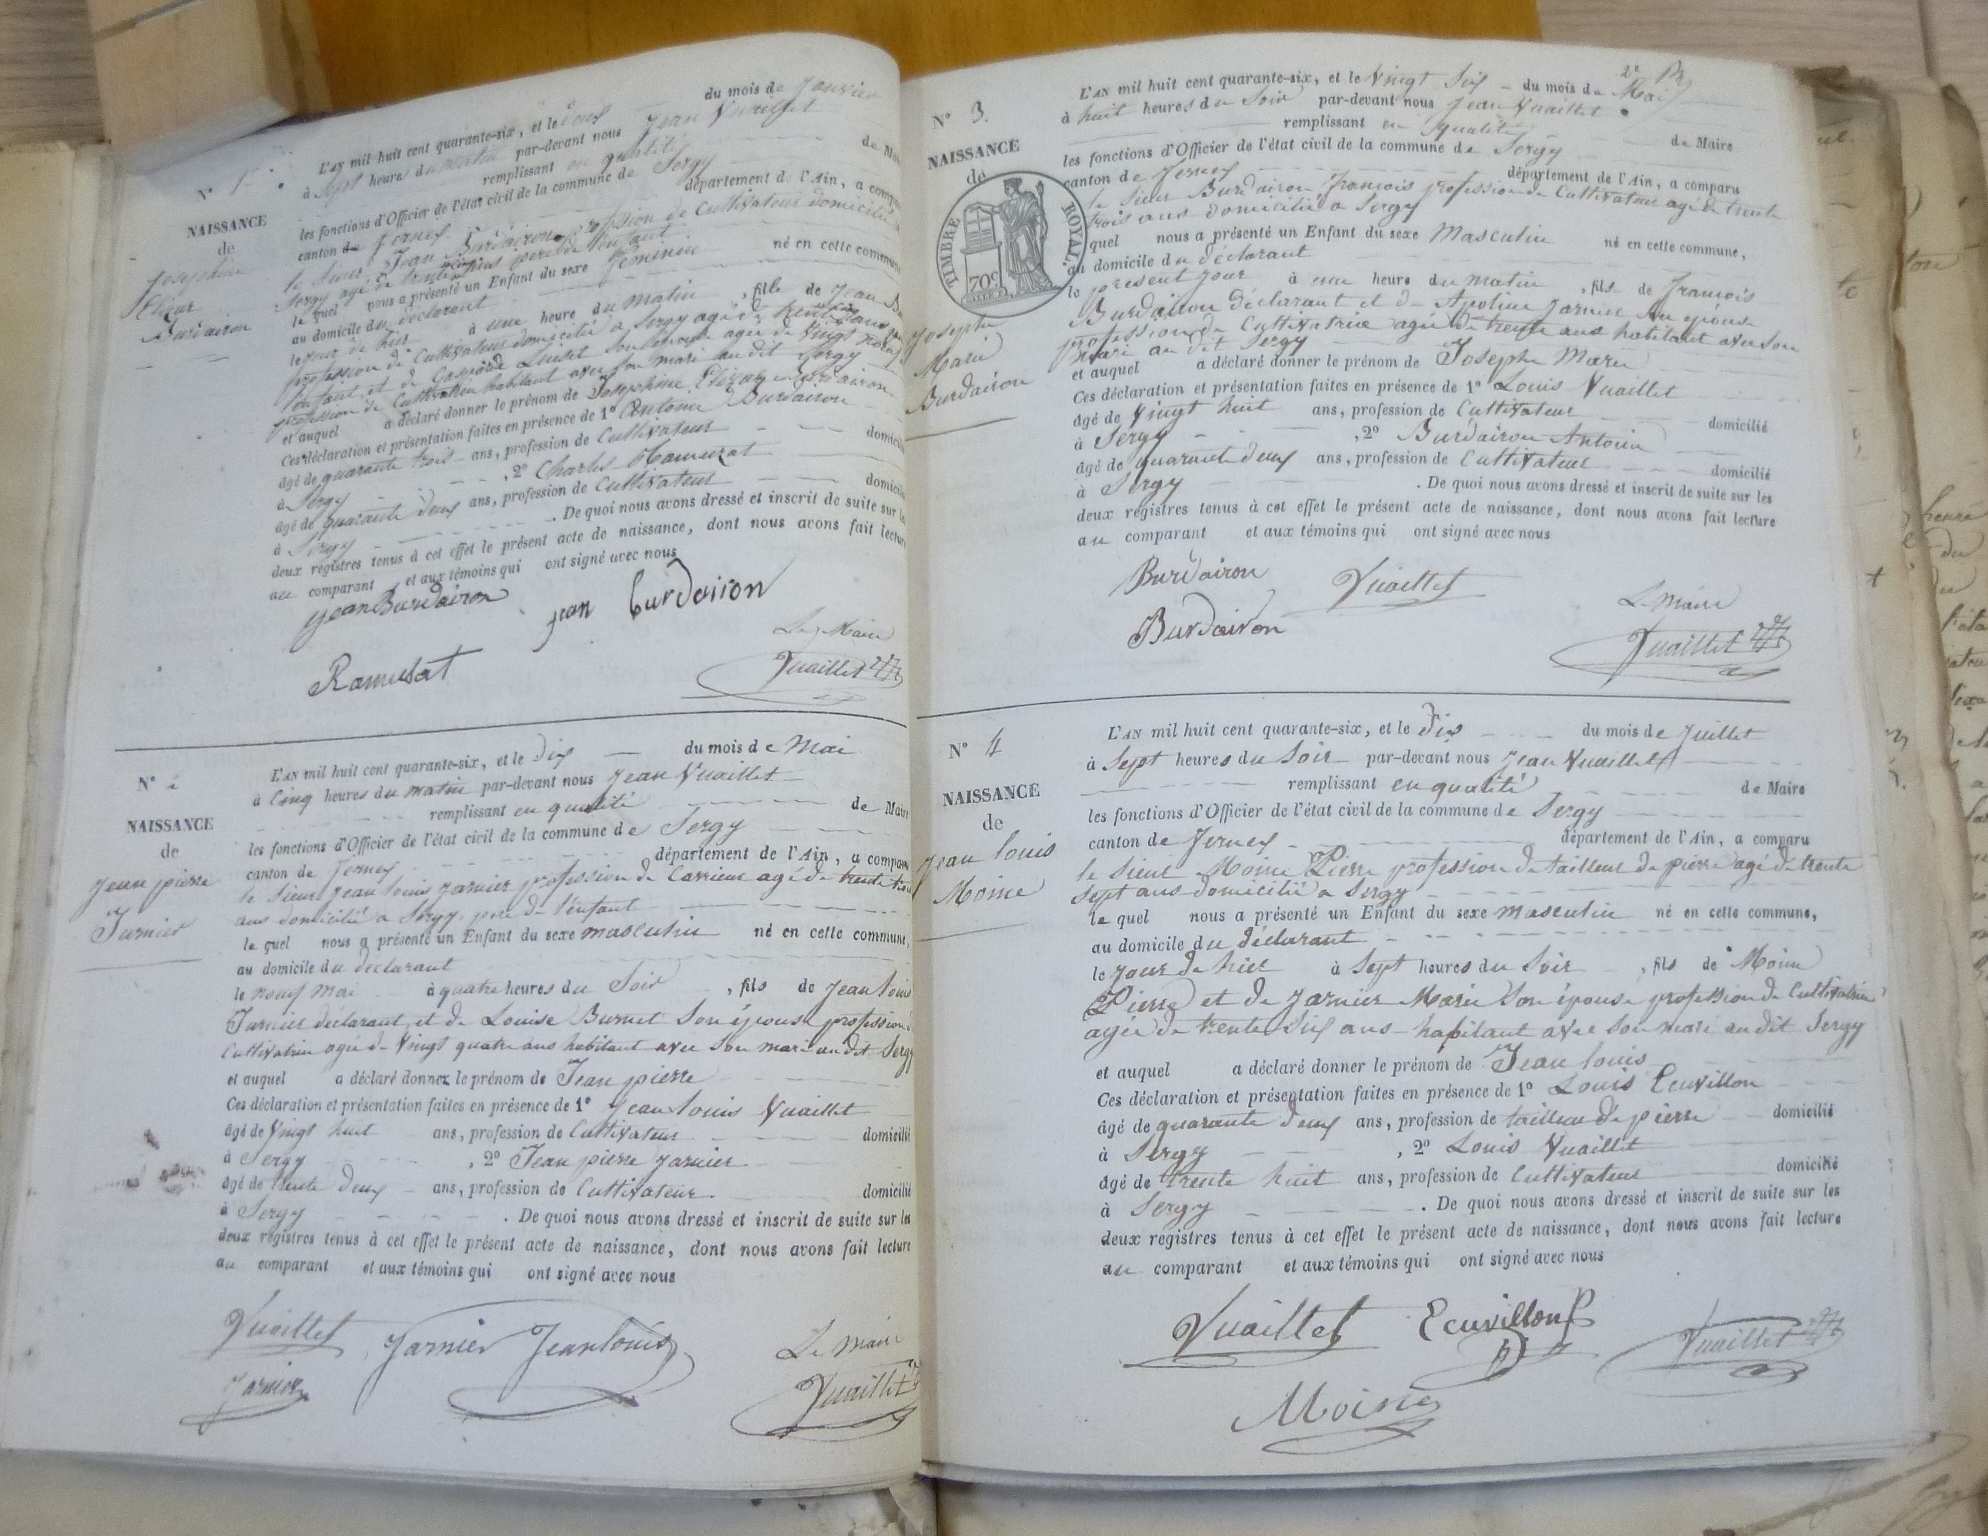 N° 1
NAISSANCE
de
Josephine
Burdairon
L'AN mil huit cent quarante-six, et le deux du mois de Janvier
à Sept heures du matin par-devant nous Jean Vuaillet
remplissant en qualité de Maire
les fonctions d'Officier de l'état civil de la commune de Sergy
canton de Fernex département de l'Ain, a comparu
le Sieur Jean Burdairon profession de Cultivateur domicilié
Sergy agé de trente ans père de l'enfant
le quel nous a présenté un Enfant du sexe féminin né en cette commune
au domicile du déclarant
le jour de hier à une heure du matin , fille de Jean
profession de Cultivateur domicilié à Sergy agé de trente ans
l'enfant et de Son épouse agée de Vingt
profession de Cultivatrice habitant avec son mari au dit Sergy
et auquel a déclaré donner le prénom de Josephine Burdairon
Ces déclaration et présentation faites en présence de 1° Antoine Burdairon
âgé de quarante trois ans, profession de Cultivateur domicilié
à Sergy , 2° Charles Ramuzat
âgé de quarante deux ans, profession de Cultivateur domicilié
à Sergy . De quoi nous avons dressé et inscrit de suite sur les
deux registres tenus à cet effet le présent acte de naissance, dont nous avons fait lecture
au comparant et aux témoins qui ont signé avec nous
Jean Burdairon jean burdairon
Le Maire
Ramusat Vuaillet
N° 2
NAISSANCE
de
Jean pierre
Jarnier
L'AN mil huit cent quarante-six, et le dix du mois de Mai
à Cinq heures du matin par-devant nous Jean Vuaillet
remplissant en qualité de Maire
les fonctions d'Officier de l'état civil de la commune de Sergy
canton de Fernex département de l'Ain, a comparu
le Sieur Jean louis Jarnier profession de Carrieur agé de trente trois
ans domicilié à Sergy père de l'enfant
le quel nous a présenté un Enfant du sexe masculin né en cette commune,
au domicile du déclarant
le neuf mai à quatre heures du Soir , fils de Jean louis
Jarnier déclarant et de Louise Burnet Son épouse profession de
Cultivatrice agée de Vingt quatre ans habitant avec Son mari au dit Sergy
et auquel a déclaré donner le prénom de Jean pierre
Ces déclaration et présentation faites en présence de 1° Jean louis Vuaillet
âgé de Vingt huit ans, profession de Cultivateur domicilié
à Sergy , 2° Jean pierre Jarnier
âgé de trente deux ans, profession de Cultivateur domicilié
à Sergy . De quoi nous avons dressé et inscrit de suite sur les
deux registres tenus à cet effet le présent acte de naissance, dont nous avons fait lecture
au comparant et aux témoins qui ont signé avec nous
Vuaillet Jarnier Jean louis Le Maire
Jarnier Vuaillet
N° 3.
NAISSANCE
de
TIMBRE ROYAL.
70c
Joseph
Marie
Burdairon
L'AN mil huit cent quarante-six, et le Vingt Six du mois de Mai
à huit heures du Soir par-devant nous Jean Vuaillet
remplissant en qualité de Maire
les fonctions d'Officier de l'état civil de la commune de Sergy
canton de Fernex département de l'Ain, a comparu
le Sieur Burdairon françois profession de Cultivateur agé de trente
trois ans domicilié à Sergy
quel nous a présenté un Enfant du sexe Masculin né en cette commune,
au domicile du déclarant
le présent jour à une heure du matin , fils de françois
Burdairon déclarant et de Apoline Jarnier Son épouse
profession de Cultivatrice agée de trente ans habitant avec Son
mari au dit Sergy
et auquel a déclaré donner le prénom de Joseph Marie
Ces déclaration et présentation faites en présence de 1° Louis Vuaillet
âgé de Vingt huit ans, profession de Cultivateur domicilié
à Sergy , 2° Burdairon Antoine
âgé de quarante deux ans, profession de Cultivateur domicilié
à Sergy . De quoi nous avons dressé et inscrit de suite sur les
deux registres tenus à cet effet le présent acte de naissance, dont nous avons fait lecture
au comparant et aux témoins qui ont signé avec nous
Burdairon Vuaillet Le Maire
Burdairon Vuaillet
N° 4
NAISSANCE
de
Jean louis
Moine
L'AN mil huit cent quarante-six, et le Dix du mois de Juillet
à Sept heures du Soir par-devant nous Jean Vuaillet
remplissant en qualité de Maire
les fonctions d'Officier de l'état civil de la commune de Sergy
canton de Fernex département de l'Ain, a comparu
le Sieur Moine Pierre profession de tailleur de pierre agé de trente
Sept ans domicilié à Sergy
le quel nous a présenté un Enfant du sexe masculin né en cette commune,
au domicile du déclarant
le jour de hier à Sept heures du Soir , fils de Moine
Pierre et de Jarnier Marie Son épouse profession de Cultivatrice
agée de trente Six ans habitant avec Son mari au dit Sergy
et auquel a déclaré donner le prénom de Jean louis
Ces déclaration et présentation faites en présence de 1° Louis Ecuvillon
âgé de quarante deux ans, profession de tailleur de pierre domicilié
à Sergy , 2° Louis Vuaillet
âgé de trente huit ans, profession de Cultivateur domicilié
à Sergy . De quoi nous avons dressé et inscrit de suite sur les
deux registres tenus à cet effet le présent acte de naissance, dont nous avons fait lecture
au comparant et aux témoins qui ont signé avec nous
Vuaillet Ecuvillon Vuaillet
Moine